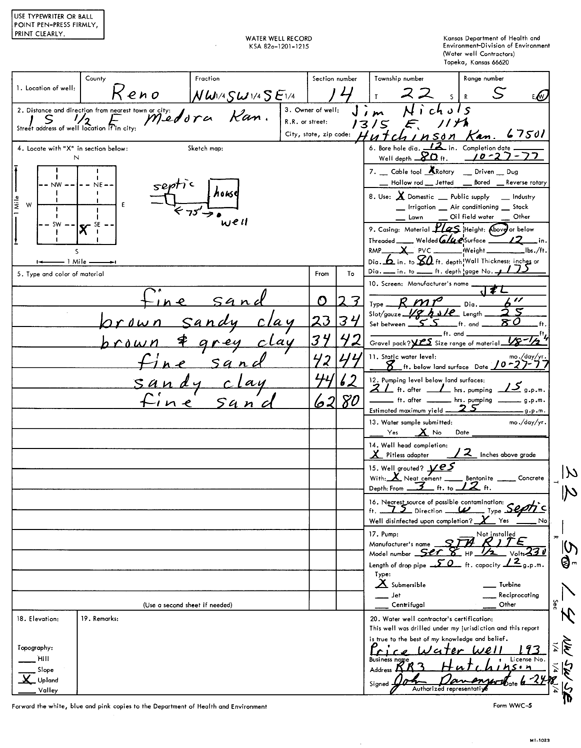 USE TYPEWRITER OR BALL
POINT PEN-PRESS FIRMLY,
PRINT CLEARLY.
WATER WELL RECORD
KSA 82a-1201-1215
Kansas Department of Health and
Environment-Division of Environment
(Water well Contractors)
Topeka, Kansas 66620
1. Location of well: County Reno Fraction NW 1/4 SW 1/4 SE 1/4 Section number 14 Township number T 22 S Range number R 5 E/W
2. Distance and direction from nearest town or city: 1 S 1/2 E Medora Kan.
Street address of well location if in city:
3. Owner of well: Jim Nichols
R.R. or street: 1315 E. 11th
City, state, zip code: Hutchinson Kan. 67501
4. Locate with "X" in section below:
Sketch map:
N
NW NE
W E
SW X SE
S
1 Mile
1 Mile
septic house
75
well
5. Type and color of material From To
fine sand 0 23
brown sandy clay 23 34
brown & grey clay 34 42
fine sand 42 44
sandy clay 44 62
fine sand 62 80
(Use a second sheet if needed)
6. Bore hole dia. 12 in. Completion date
Well depth 80 ft. 10-27-77
7. Cable tool X Rotary Driven Dug
Hollow rod Jetted Bored Reverse rotary
8. Use: X Domestic Public supply Industry
Irrigation Air conditioning Stock
Lawn Oil field water Other
9. Casing: Material Plas Height: Above or below
Threaded Welded Glue Surface 12 in.
RMP X PVC Weight lbs./ft.
Dia. 6 in. to 80 ft. depth Wall Thickness: inches or
Dia. in. to ft. depth gage No. .175
10. Screen: Manufacturer's name
J&L
Type RMP Dia. 6"
Slot/gauze 1/8 hole Length 25
Set between 55 ft. and 80 ft.
ft. and ft.
Gravel pack? yes Size range of material 1/8-1/4
11. Static water level: mo./day/yr.
8 ft. below land surface Date 10-27-77
12. Pumping level below land surfaces:
21 ft. after 1 hrs. pumping 15 g.p.m.
ft. after hrs. pumping g.p.m.
Estimated maximum yield 25 g.p.m.
13. Water sample submitted: mo./day/yr.
Yes X No Date
14. Well head completion:
X Pitless adapter 12 Inches above grade
15. Well grouted? yes
With: X Neat cement Bentonite Concrete
Depth: From 3 ft. to 12 ft.
16. Nearest source of possible contamination:
ft. 75 Direction W Type Septic
Well disinfected upon completion? X Yes No
17. Pump: Not installed
Manufacturer's name STA RITE
Model number Ser 8 HP 1/2 Volts 230
Length of drop pipe 50 ft. capacity 12 g.p.m.
Type:
X Submersible Turbine
Jet Reciprocating
Centrifugal Other
18. Elevation:
19. Remarks:
Topography:
Hill
Slope
X Upland
Valley
20. Water well contractor's certification:
This well was drilled under my jurisdiction and this report
is true to the best of my knowledge and belief.
Price Water Well 193
Business name License No.
Address RR3 Hutchinson
Signed John Davenport Date 6-24-78
Authorized representative
Forward the white, blue and pink copies to the Department of Health and Environment
Form WWC-5
T 22 R 5 E/W Sec 14 NW SW SE 1/4 1/4 1/4